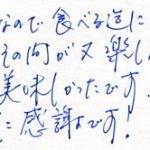 なので食べる迄に
その間が又楽し
美味しかったです
に感謝です!